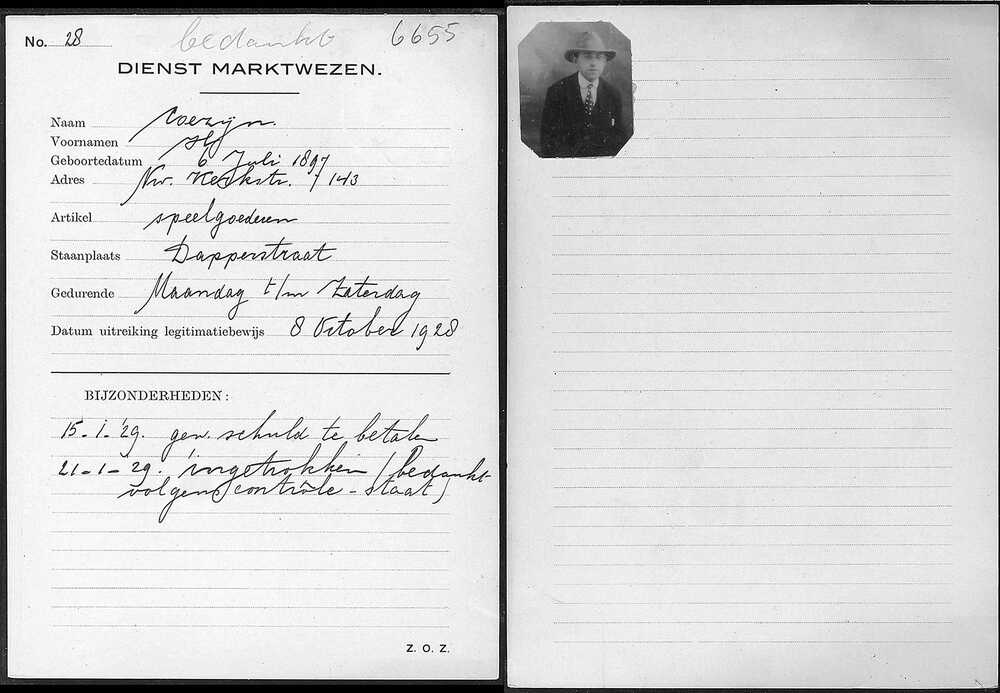 No. 28 bedankt 6655
DIENST MARKTWEZEN.
Naam Coezijn.
Voornamen
Geboortedatum 6 Juli 1897
Adres Nw. Kerkstr. 143
Artikel speelgoederen
Staanplaats Dapperstraat
Gedurende Maandag t/m Zaterdag
Datum uitreiking legitimatiebewijs 8 October 1928
BIJZONDERHEDEN:
15-1-'29. gen. schuld te betalen
21-1-29. ingetrokken (bedankt
volgens contrôle-staat)
Z. O. Z.